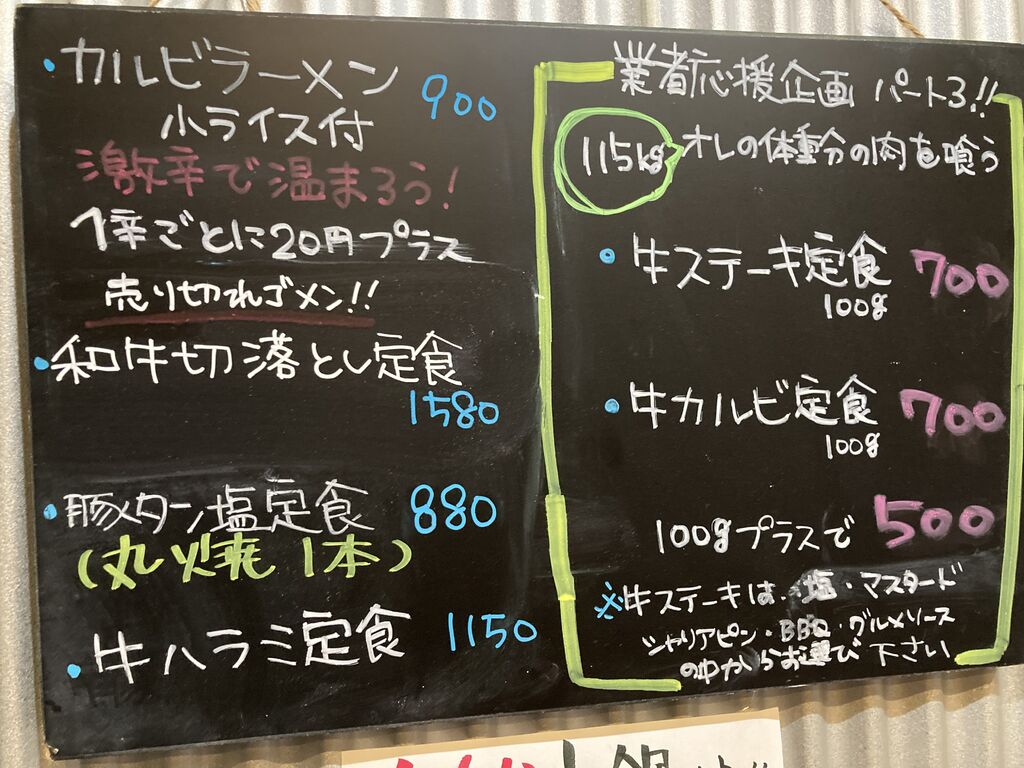 ・カルビラーメン 900
小ライス付
激辛で温まろう!
1辛ごとに20円プラス
売り切れゴメン!!
・和牛切落とし定食
1580
・豚タン塩定食 880
(丸焼 1本)
・牛ハラミ定食 1150
業者応援企画 パート3!!
115kg オレの体重分の肉を喰う
・牛ステーキ定食 700
100g
・牛カルビ定食 700
100g
100gプラスで 500
※牛ステーキは、塩・マスタード
シャリアピン・BBQ・グルメソース
の中からお選び下さい